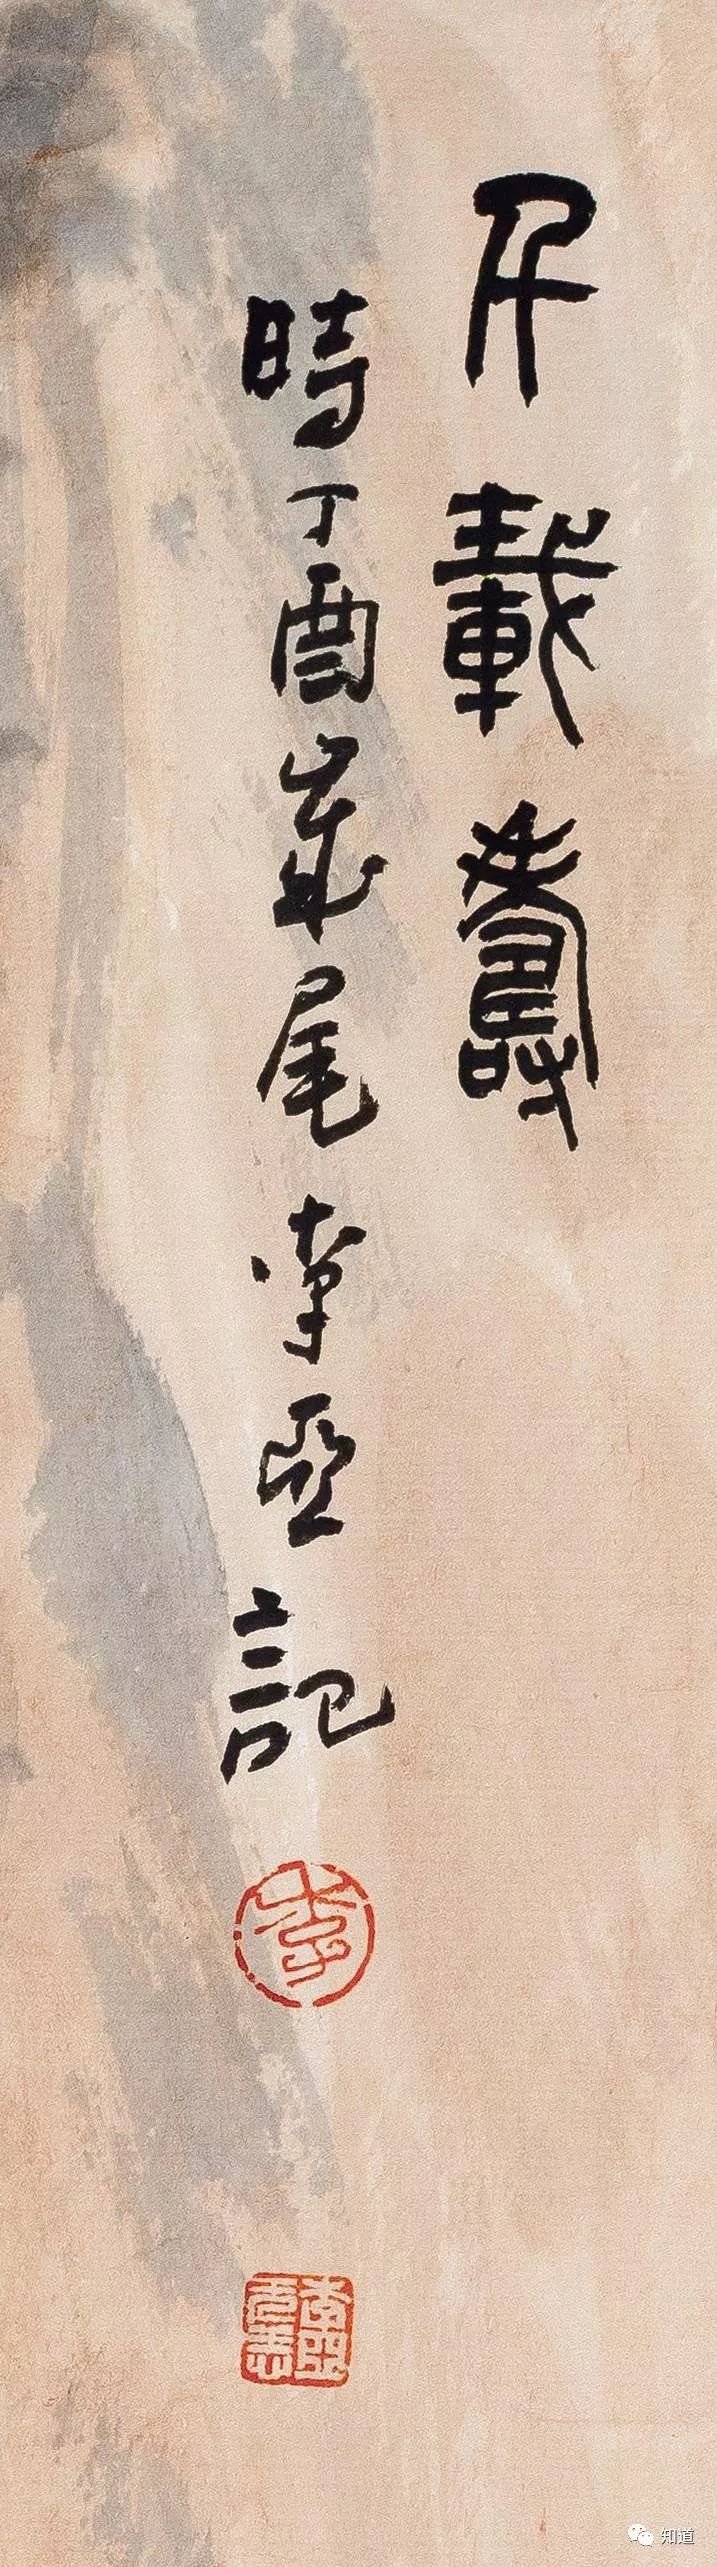 千載壽
時丁酉歲尾李亞記
李
知道